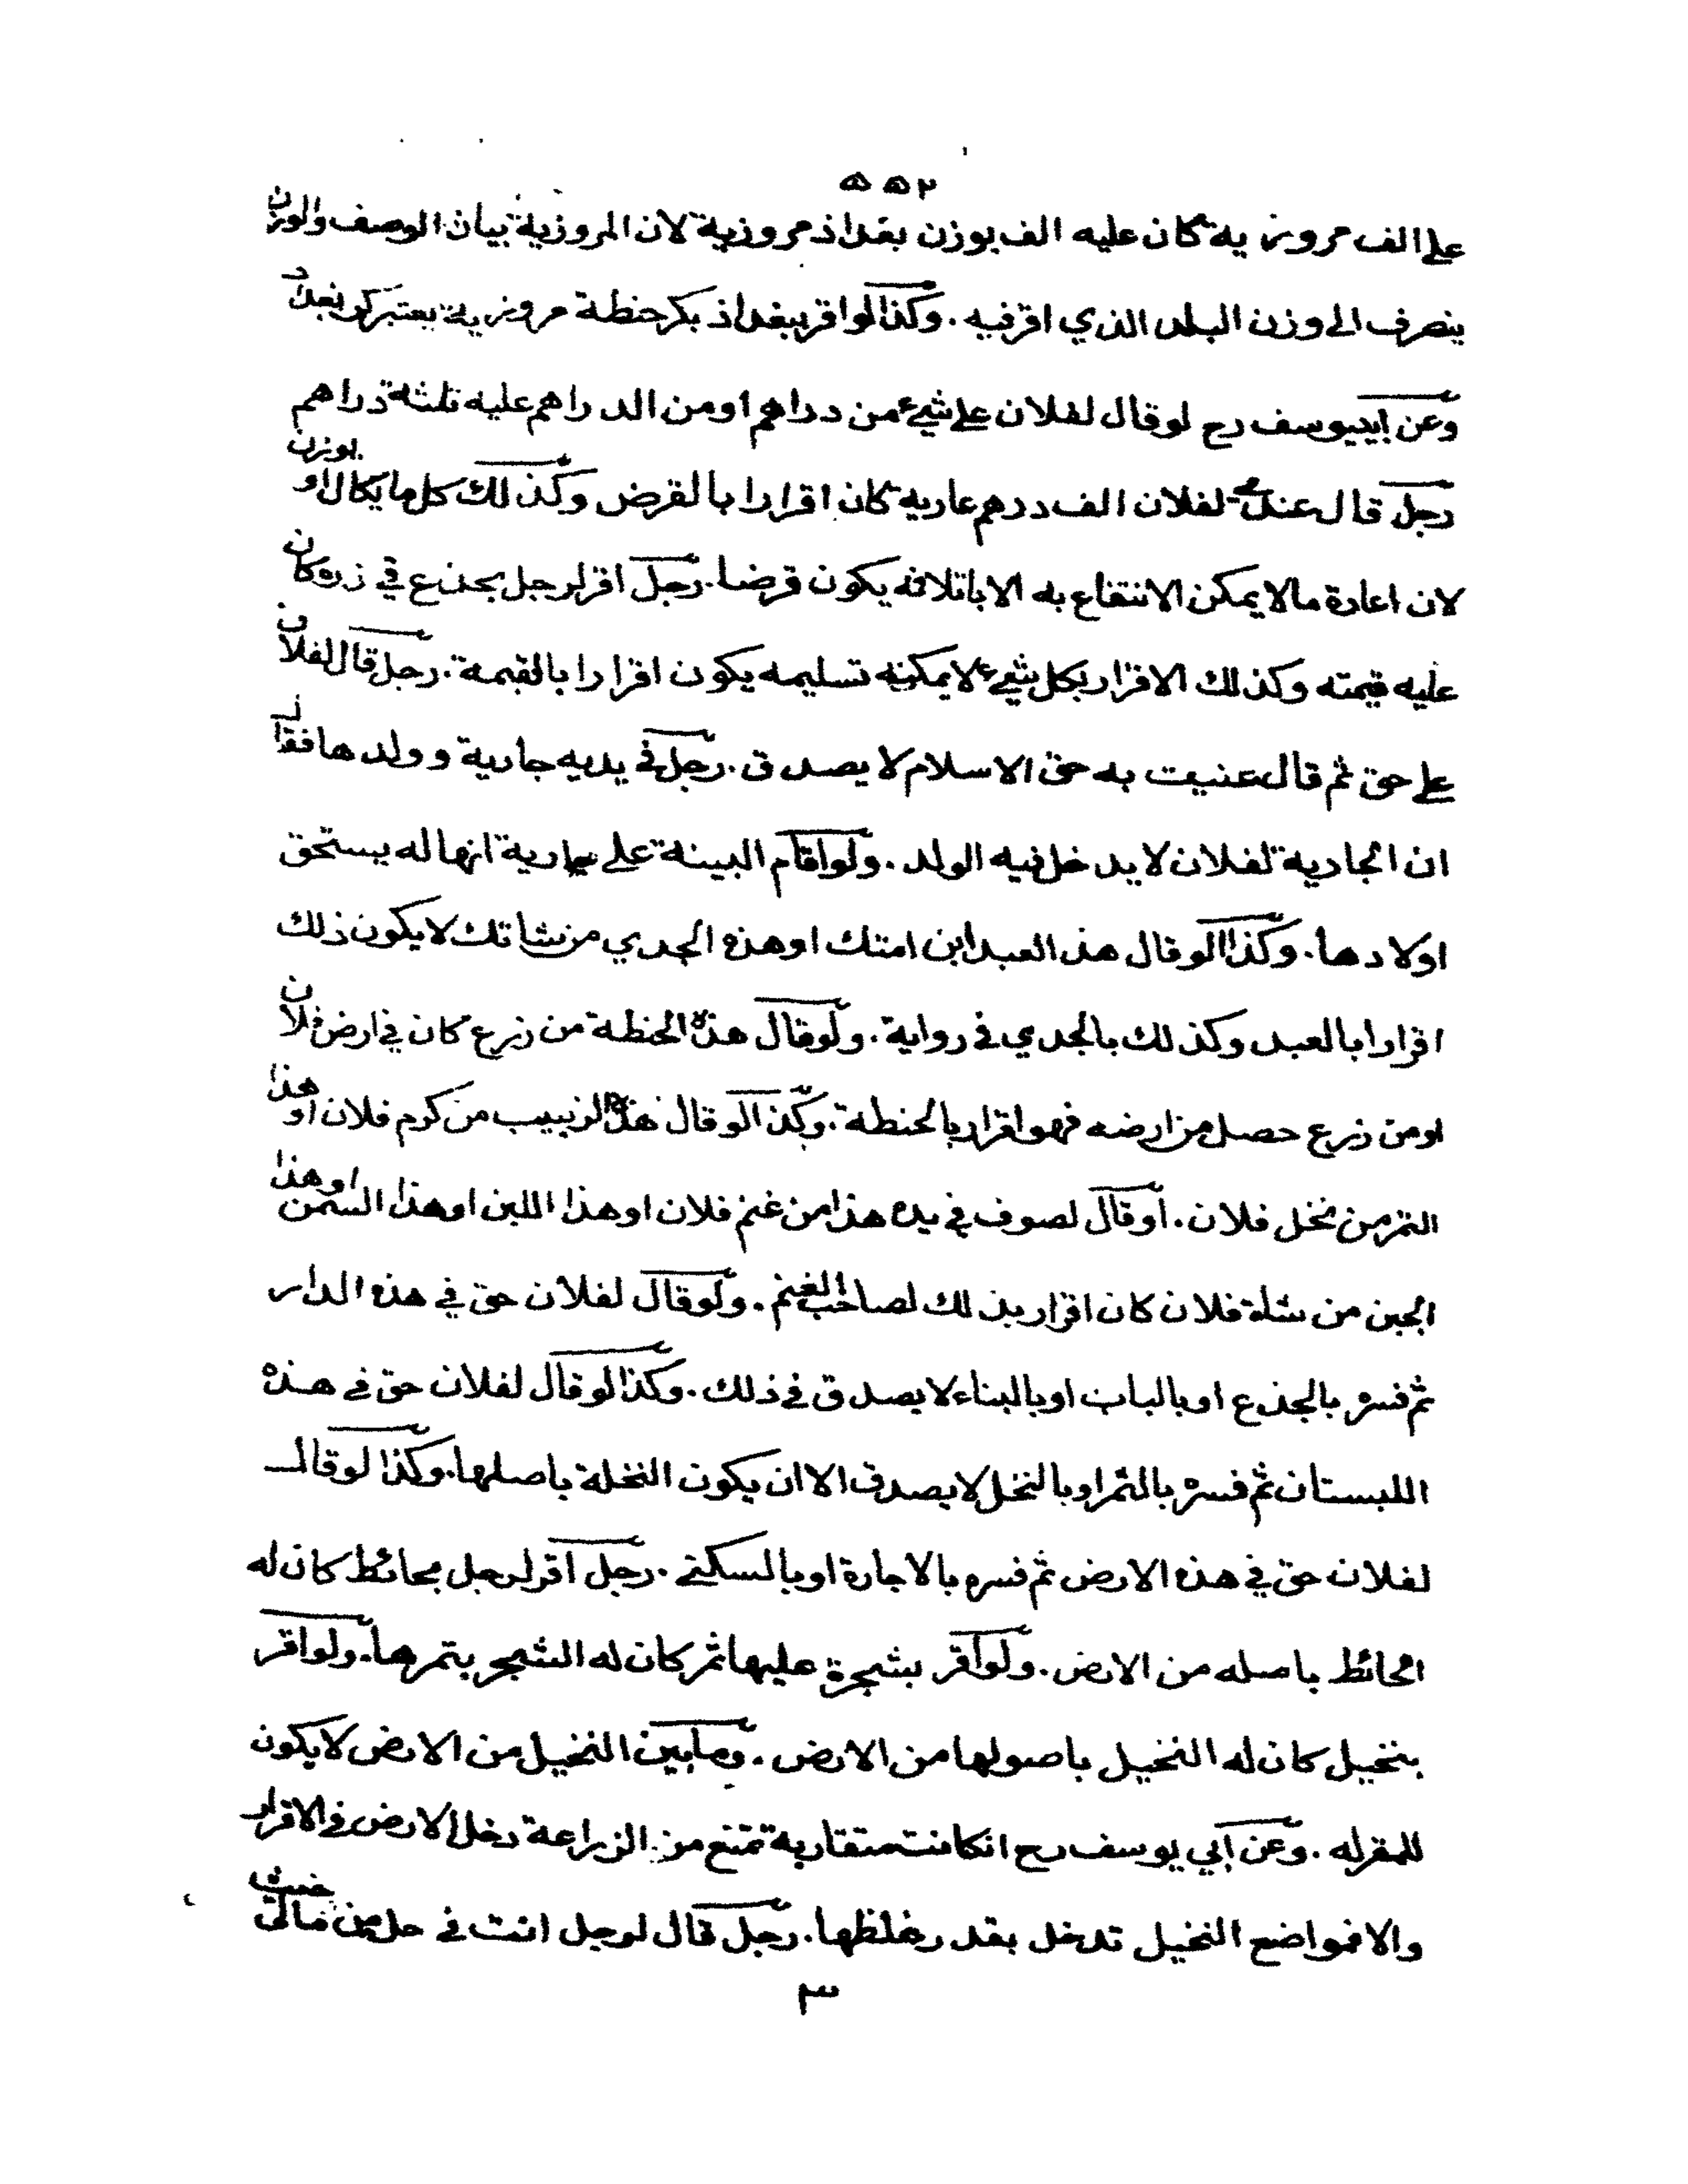 ٥٥٢
علي الف مروزية كان عليه الف بوزن بغداذ مروزية لان المروزية بيان الوصف والوزن
ينصرف الى وزن البلد الذي اقر فيه . وكذا لو اقر ببغداذ بكر حنطة مروزية يعتبر كر بغداد
وعن ابييوسف رح لو قال لفلان علي شيء من دراهم او من الدراهم عليه ثلثة دراهم
رجل قال عندي لفلان الف درهم عارية كان اقرارا بالقرض وكذلك كل ما يكال او يوزن
لان اعارة ما لا يمكن الانتفاع به الا باتلافه يكون قرضا . رجل اقر لرجل بجذع في زره كان
عليه قيمته وكذلك الاقرار بكل شيء لا يمكنه تسليمه يكون اقرارا بالقيمة . رجل قال لفلان
علي حق ثم قال عنيت به حق الاسلام لا يصدق . رجل في يديه جارية وولدها فقال
ان الجارية لفلان لا يدخل فيه الولد . ولو اقام البينة على جارية انها له يستحق
اولادها . وكذا لو قال هذا العبد ابن امتك او هذه الجدي من شاتك لا يكون ذلك
اقرارا بالعبد وكذلك بالجدي في رواية . ولو قال هذه الحنطة من زرع كان في ارض فلان
او من زرع حصل من ارضه فهو اقرار بالحنطة . وكذا لو قال هذا الزبيب من كرم فلان او هذا
التمر من نخل فلان . او قال لصوف في يده هذا من غنم فلان او هذا اللبن او هذا السمن او هذا
الجبن من شاة فلان كان اقرار بذلك لصاحب الغنم . ولو قال لفلان حق في هذه الدار
ثم فسره بالجذع او بالباب او بالبناء لا يصدق في ذلك . وكذا لو قال لفلان حق في هذه
اللبستان ثم فسره بالثمر او بالنخل لا يصدق الا ان يكون النخلة باصلها . وكذا لو قال
لفلان حق في هذه الارض ثم فسره بالاجارة او بالسكنى . رجل اقر لرجل بحائط كان له
الحائط باصله من الارض . ولو اقر بشجرة عليها ثمر كان له الشجر بتمرها . ولو اقر
بنخيل كان له النخيل باصولها من الارض . وما بين النخيل من الارض لا يكون
للمقر له . وعن ابي يوسف رح انكانت متقاربة تمنع من الزراعة دخل الارض في الاقرار
والا فمواضع النخيل تدخل بقدر غلظها . رجل قال لرجل انت في حل من مالي